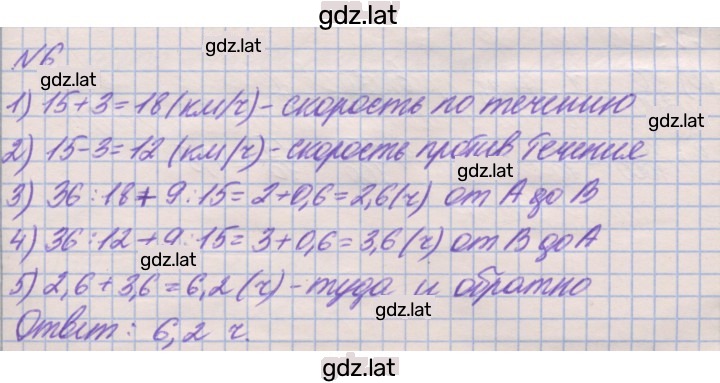 gdz.lat
N6
gdz.lat
gdz.lat
1) 15+3=18 (км/ч) - скорость по течению
gdz.lat
2) 15-3=12 (км/ч) - скорость против течения
gdz.lat
3) 36:18+9:15=2+0,6=2,6(ч) от А до В
4) 36:12+9:15=3+0,6=3,6(ч) от В до А
gdz.lat
5) 2,6+3,6=6,2(ч) - туда и обратно
gdz.lat
Ответ: 6,2 ч.
gdz.lat